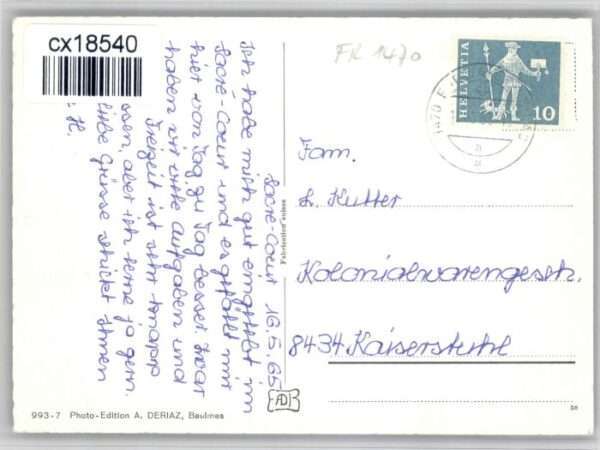 cx18540
FK 1470
HELVETIA
10
1470
Sacré-Coeur 16.5.65
Ich habe mich gut eingelebt im
Sacré-Coeur und es gefällt mir
hier von Tag zu Tag besser. Zwar
haben wir viele Aufgaben und
Freizeit ist sehr knapp
aber ich lerne ja gern.
liebe Grüsse schickt Ihnen
H.
Fam.
L. Kutter
Kolonialwarengesch.
8434 Kaiserstuhl
Fabrication suisse
AD
993-7 Photo-Edition A. DERIAZ, Baulmes